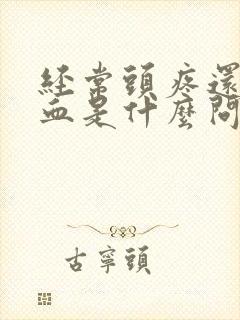 經常頭疼還
血是什麼問
古寧頭